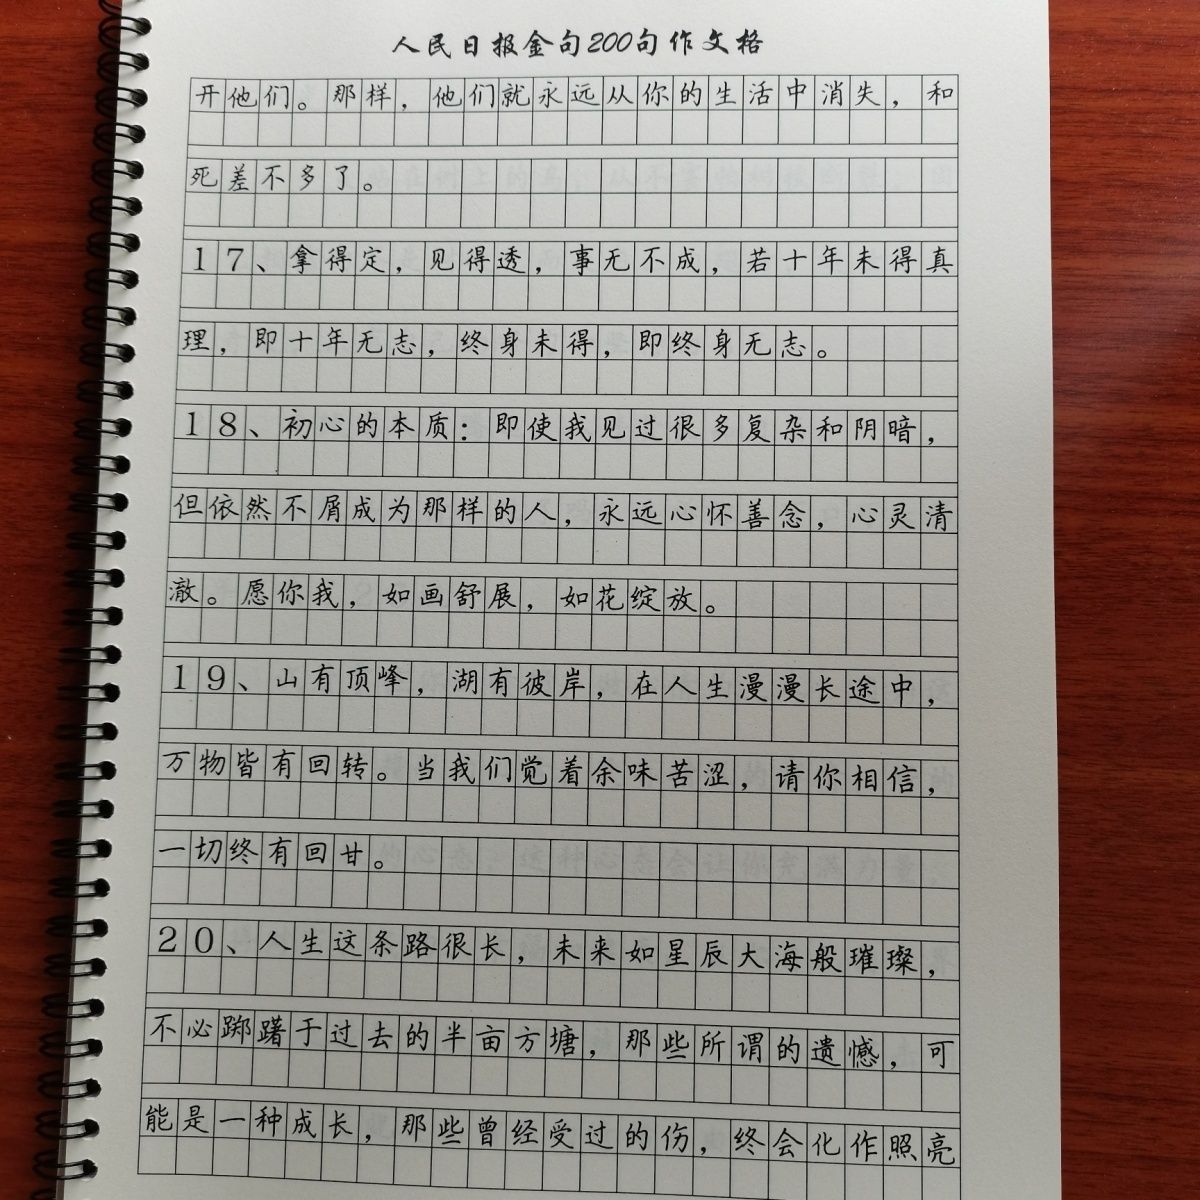 人民日报金句200句作文格
开他们。那样，他们就永远从你的生活中消失，和
死差不多了。
17、拿得定，见得透，事无不成，若十年未得真
理，即十年无志，终身未得，即终身无志。
18、初心的本质：即使我见过很多复杂和阴暗，
但依然不屑成为那样的人，永远心怀善念，心灵清
澈。愿你我，如画舒展，如花绽放。
19、山有顶峰，湖有彼岸，在人生漫漫长途中，
万物皆有回转。当我们觉着余味苦涩，请你相信，
一切终有回甘。
20、人生这条路很长，未来如星辰大海般璀璨，
不必踯躅于过去的半亩方塘，那些所谓的遗憾，可
能是一种成长，那些曾经受过的伤，终会化作照亮